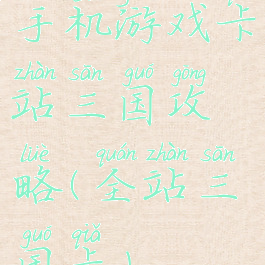 手机游戏卡
zhàn sān guó gōng
站三国攻
lüè quán zhàn sān
略(全站三
guó qiǎ
国卡)